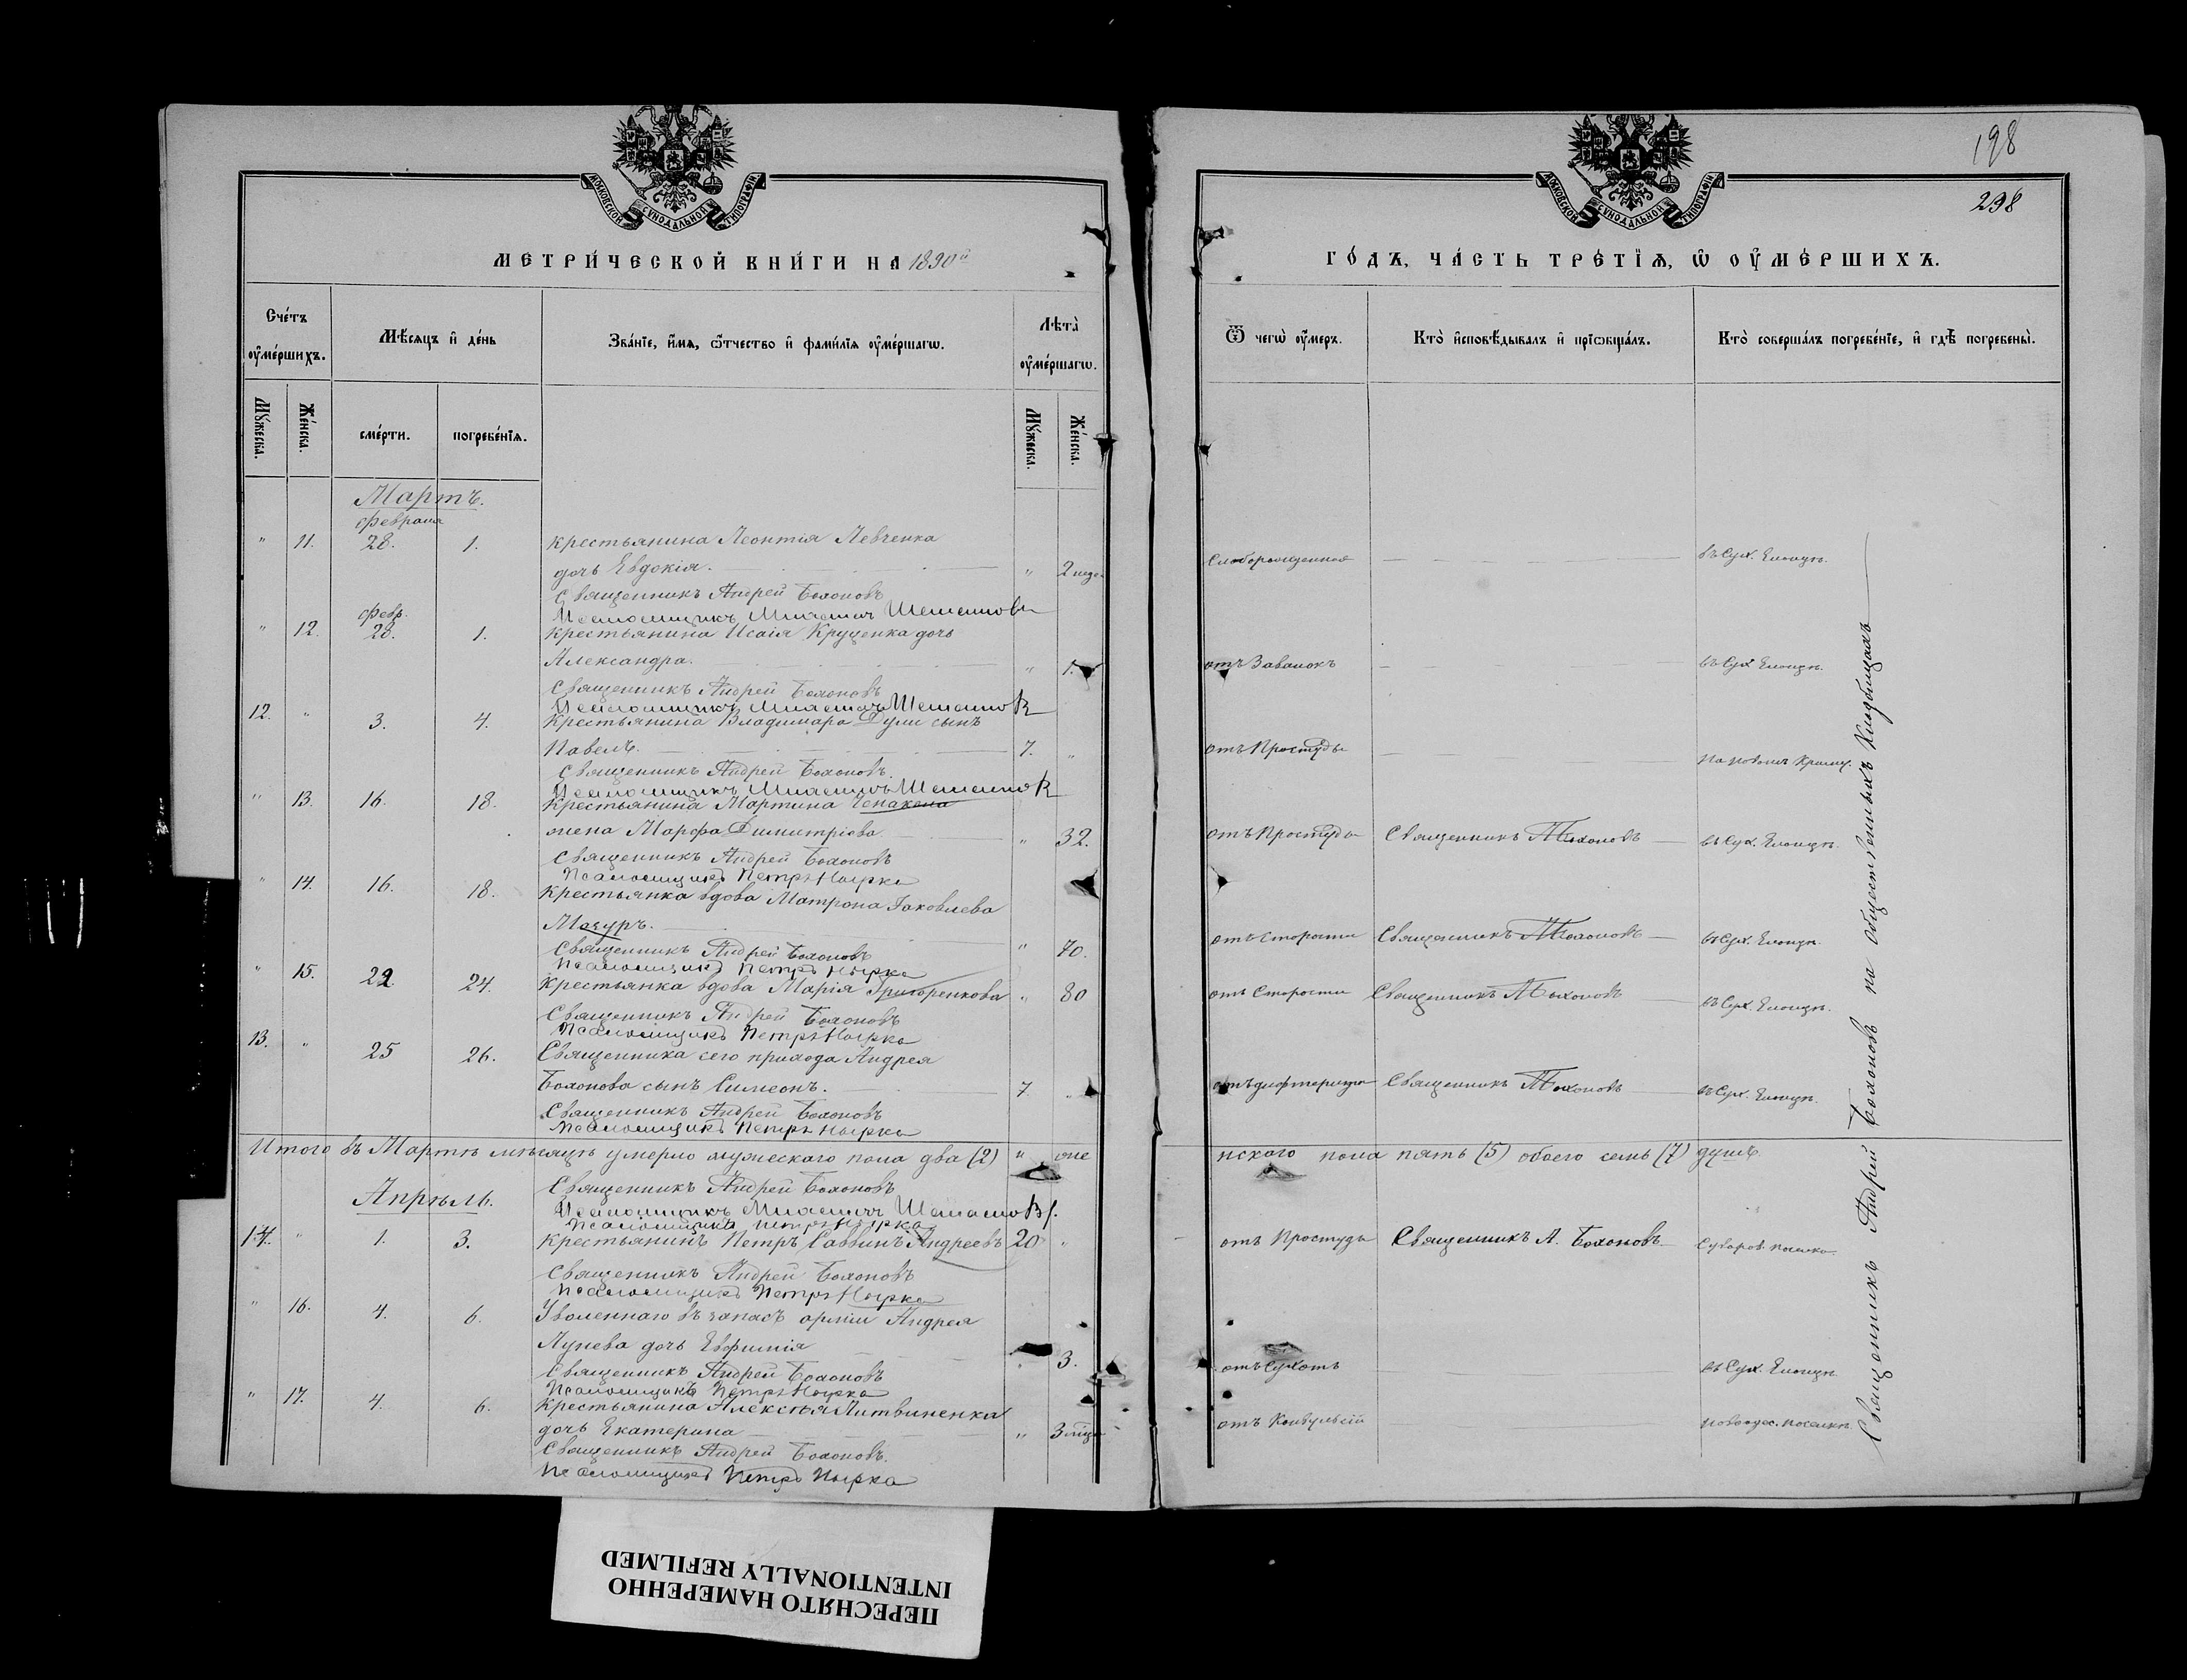 МОСКОВСКОЙ СУНОДАЛЬНОЙ ТИПОГРАФІИ
МЕТРИ́ЧЕСКОЙ КНИ́ГИ НА 1890й
Сче́тъ ᲂу҆ме́ршихъ.
Мѣ́сяцъ и҆ де́нь
Зва́нїе, и҆́мѧ, ѻ҆́тчество и҆ фами́лїѧ ᲂу҆ме́ршагѡ.
Лѣта̀ ᲂу҆ме́ршагѡ.
Му́жеска.
Же́нска.
сме́рти.
погребе́нїѧ.
Му́жеска.
Же́нска.
Мартъ.
Февраля
" 11. 28. 1. Крестьянина Леонтія Левченка
дочь Евдокія. " 2 нед.
Священникъ Андрей Бохоновъ
Псаломщикъ
Февр.
" 12. 28. 1. Крестьянина Исаія Круценка дочь
Александра. " 1.
Священникъ Андрей Бохоновъ
Псаломщикъ
12. " 3. 4. Крестьянина Владимира Дули сынъ
Павелъ. 7. "
Священникъ Андрей Бохоновъ.
Псаломщикъ
" 13. 16. 18. Крестьянина Мартина
жена Марфа Димитріева " 32.
Священникъ Андрей Бохоновъ
Псаломщикъ Петръ Нырка
" 14. 16. 18. Крестьянка вдова Матрона Іаковлева
Мазуръ. " 70.
Священникъ Андрей Бохоновъ
Псаломщикъ Петръ Нырка
" 15. 22. 24. Крестьянка вдова Марія Григоренкова " 80
Священникъ Андрей Бохоновъ
Псаломщикъ Петръ Нырка
13. " 25 26. Священника сего прихода Андрея
Бохонова сынъ Симеонъ. 7. "
Священникъ Андрей Бохоновъ
Псаломщикъ Петръ Нырка
Итого въ Мартѣ мѣсяцѣ умерло мужескаго пола два (2) " жен
Священникъ Андрей Бохоновъ
Апрѣль.
Псаломщикъ
Псаломщикъ Петръ Нырка
14. " 1. 3. Крестьянинъ Петръ Саввинъ Андреевъ 20 "
Священникъ Андрей Бохоновъ
Псаломщикъ Петръ Нырка
" 16. 4. 6. Уволеннаго въ запасъ арміи Андрея
Лунева дочь Евфимія 3.
Священникъ Андрей Бохоновъ
Псаломщикъ Петръ Нырка
" 17. 4. 6. Крестьянина Алексѣя Литвиненка
дочь Екатерина " 3 мѣц.
Священникъ Андрей Бохоновъ.
Псаломщикъ Петръ Нырка
198
298
МОСКОВСКОЙ СУНОДАЛЬНОЙ ТИПОГРАФІИ
ГО́ДЪ, ЧА́СТЬ ТРЕ́ТЇѦ, Ѡ҆ ОУ҆МЕ́РШИХЪ.
Ѿ чегѡ̀ ᲂу҆́меръ.
Кто̀ и҆сповѣ́дывалъ и҆ прїѡбща́лъ.
Кто̀ соверша́лъ погребе́нїе, и҆ гдѣ̀ погребены̀.
Слаборожденная въ Сух. Еланцѣ.
отъ Завалокъ въ Сух. Еланцѣ.
отъ Простуды на новомъ
отъ Простуды Священникъ А Бохоновъ въ Сух. Еланцѣ.
отъ Старости Священникъ А Бохоновъ въ Сух. Еланцѣ.
отъ Старости Священникъ А Бохоновъ въ Сух. Еланцѣ.
отъ дифтерита Священникъ А Бохоновъ въ Сух. Еланцѣ.
нскаго пола пять (5) обоего семь (7) душъ.
отъ Простуды Священникъ А. Бохоновъ
отъ Сухотъ въ Сух. Еланцѣ.
отъ Конвульсій новоодес. поселкѣ.
Священникъ Андрей Бохоновъ на общественныхъ Кладбищахъ
ПЕРЕСНЯТО НАМЕРЕННО
INTENTIONALLY REFILMED